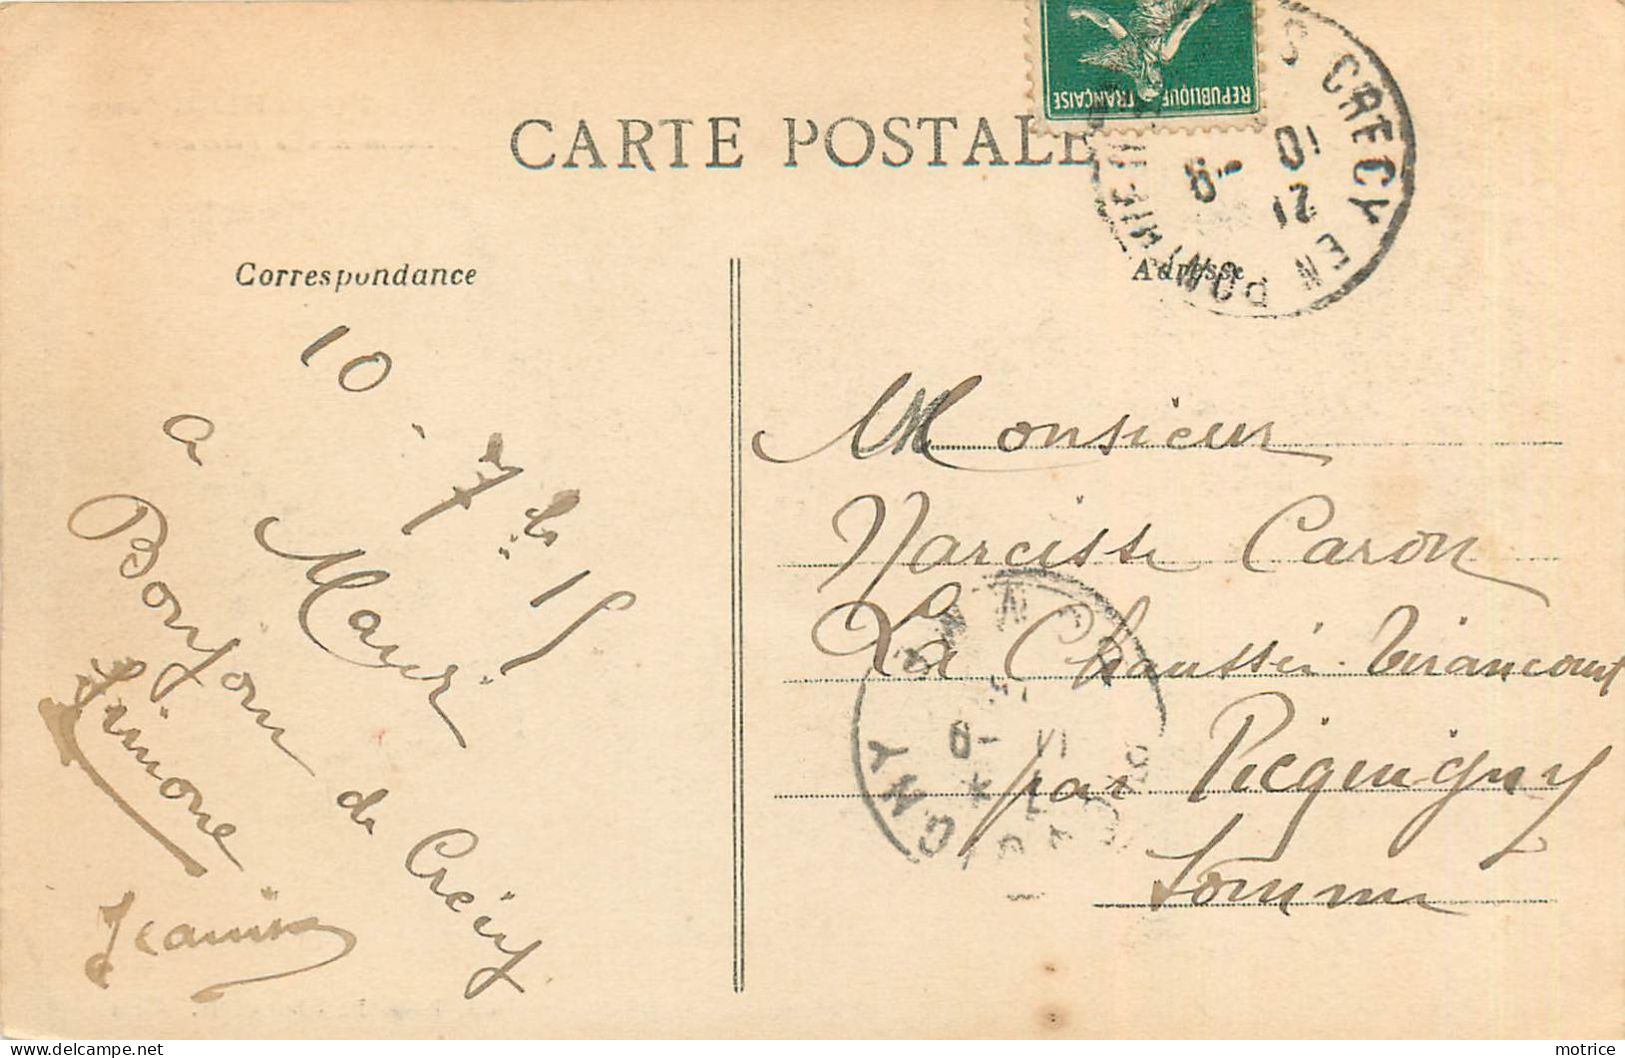 CARTE POSTALE
REPUBLIQUE FRANÇAISE
CRECY EN PONTHIEU
10
12
Correspondance
10 - 7bre 15
a Mauri
Bonjour de Crécy
Simone
Jeanine
Adresse
Monsieur
Narcisse Caron
La Chaussée Tirancourt
par Picquigny
Somme
PICQUIGNY
motrice